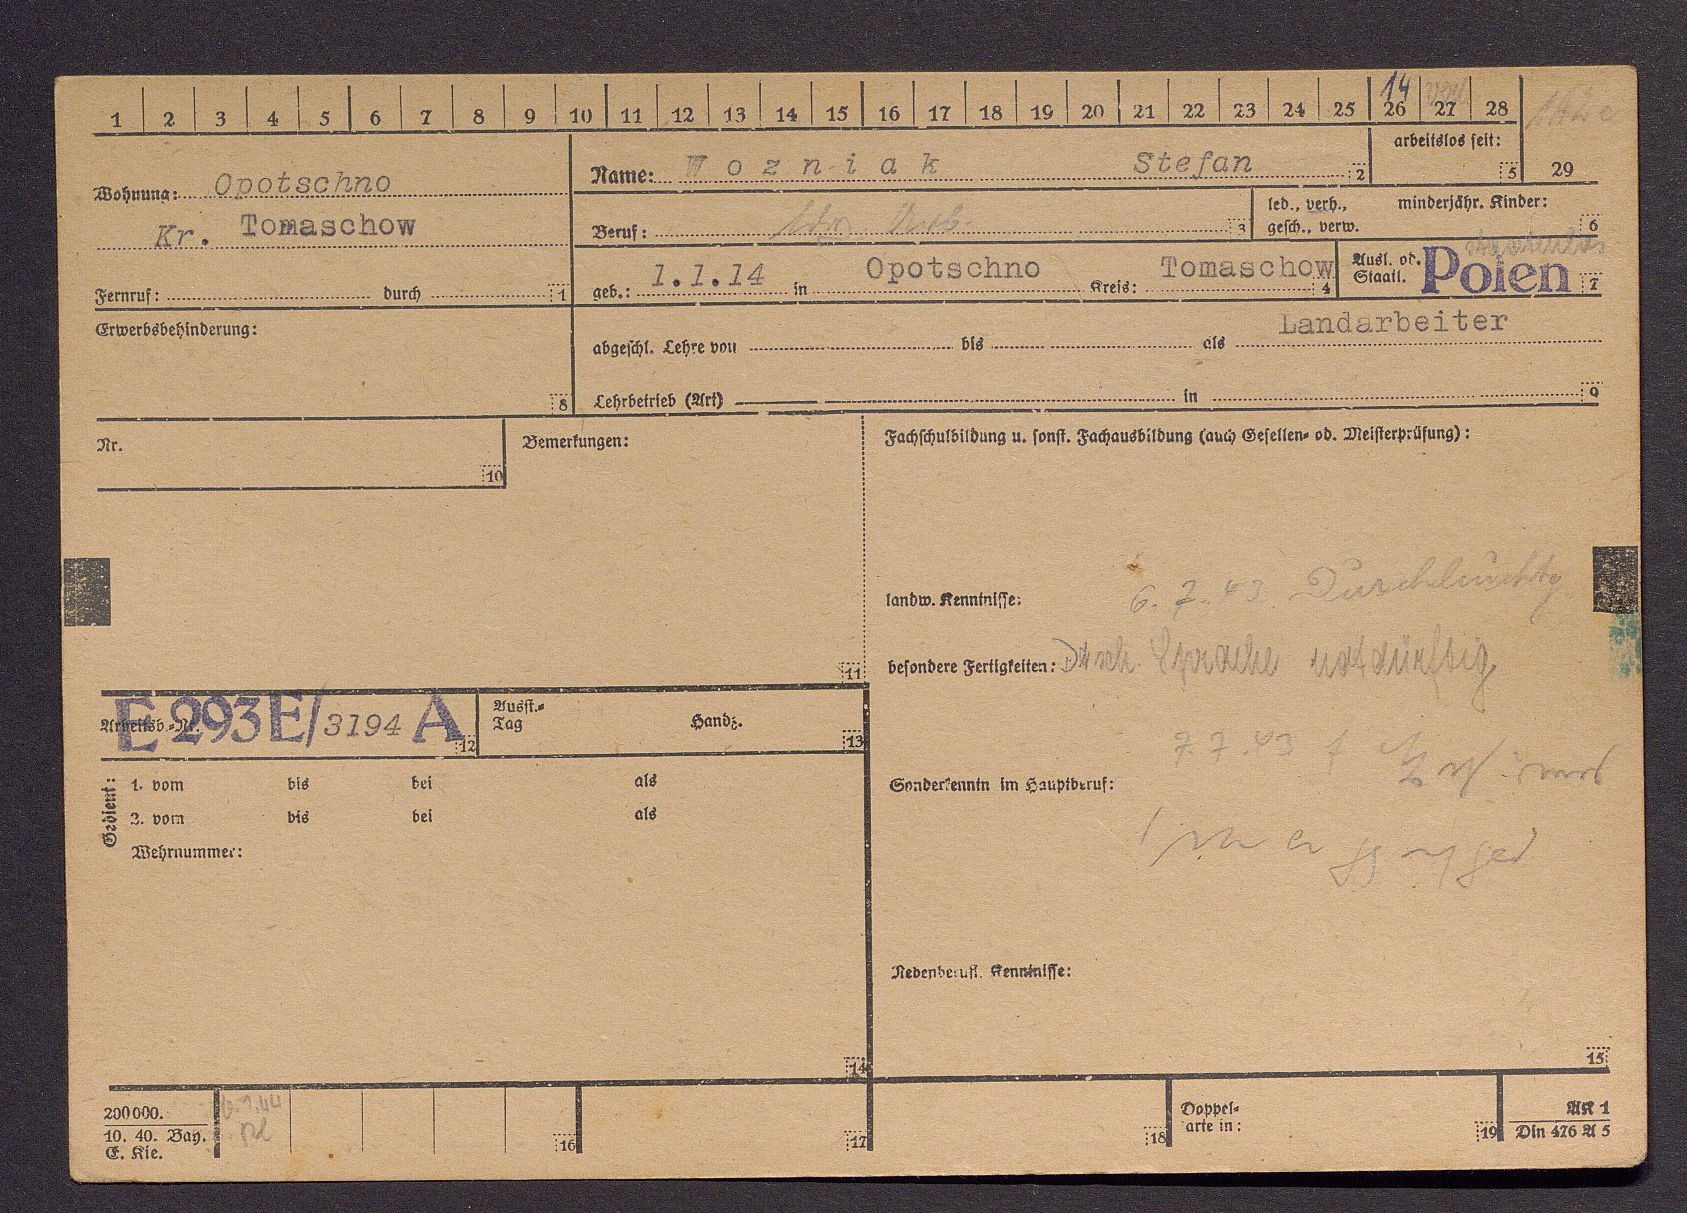 1 2 3 4 5 6 7 8 9 10 11 12 13 14 15 16 17 18 19 20 21 22 23 24 25 26 27 28
14
Wohnung: Opotschno
Kr. Tomaschow
Fernruf: durch 1
Name: Wozniak Stefan 2
arbeitslos seit: 5
29
Beruf: 3
led., verh., minderjähr. Kinder:
gesch., verw. 6
geb.: 1.1.14 in Opotschno Kreis: Tomaschow 4
Ausl. od.
Staatl. Polen 7
Erwerbsbehinderung: 8
abgeschl. Lehre von bis als Landarbeiter
Lehrbetrieb (Art) in 9
Nr. 10
Bemerkungen: 11
Fachschulbildung u. sonst. Fachausbildung (auch Gesellen- od. Meisterprüfung):
6.7.43
landw. Kenntnisse:
besondere Fertigkeiten: Dtsch. Sprache notdürftig
7.7.43
Sonderkenntn im Hauptberuf:
Nebenberufl. Kenntnisse:
15
Arbeitsb.-Nr. E 293E/3194 A 12
Ausst.-
Tag Handz. 13
Gedient:
1. vom bis bei als
2. vom bis bei als
Wehrnummer:
14
200000.
10. 40. Bay.
E. Kie.
16 17 18
Doppel-
arte in: 19
AK 1
Din 476 A 5